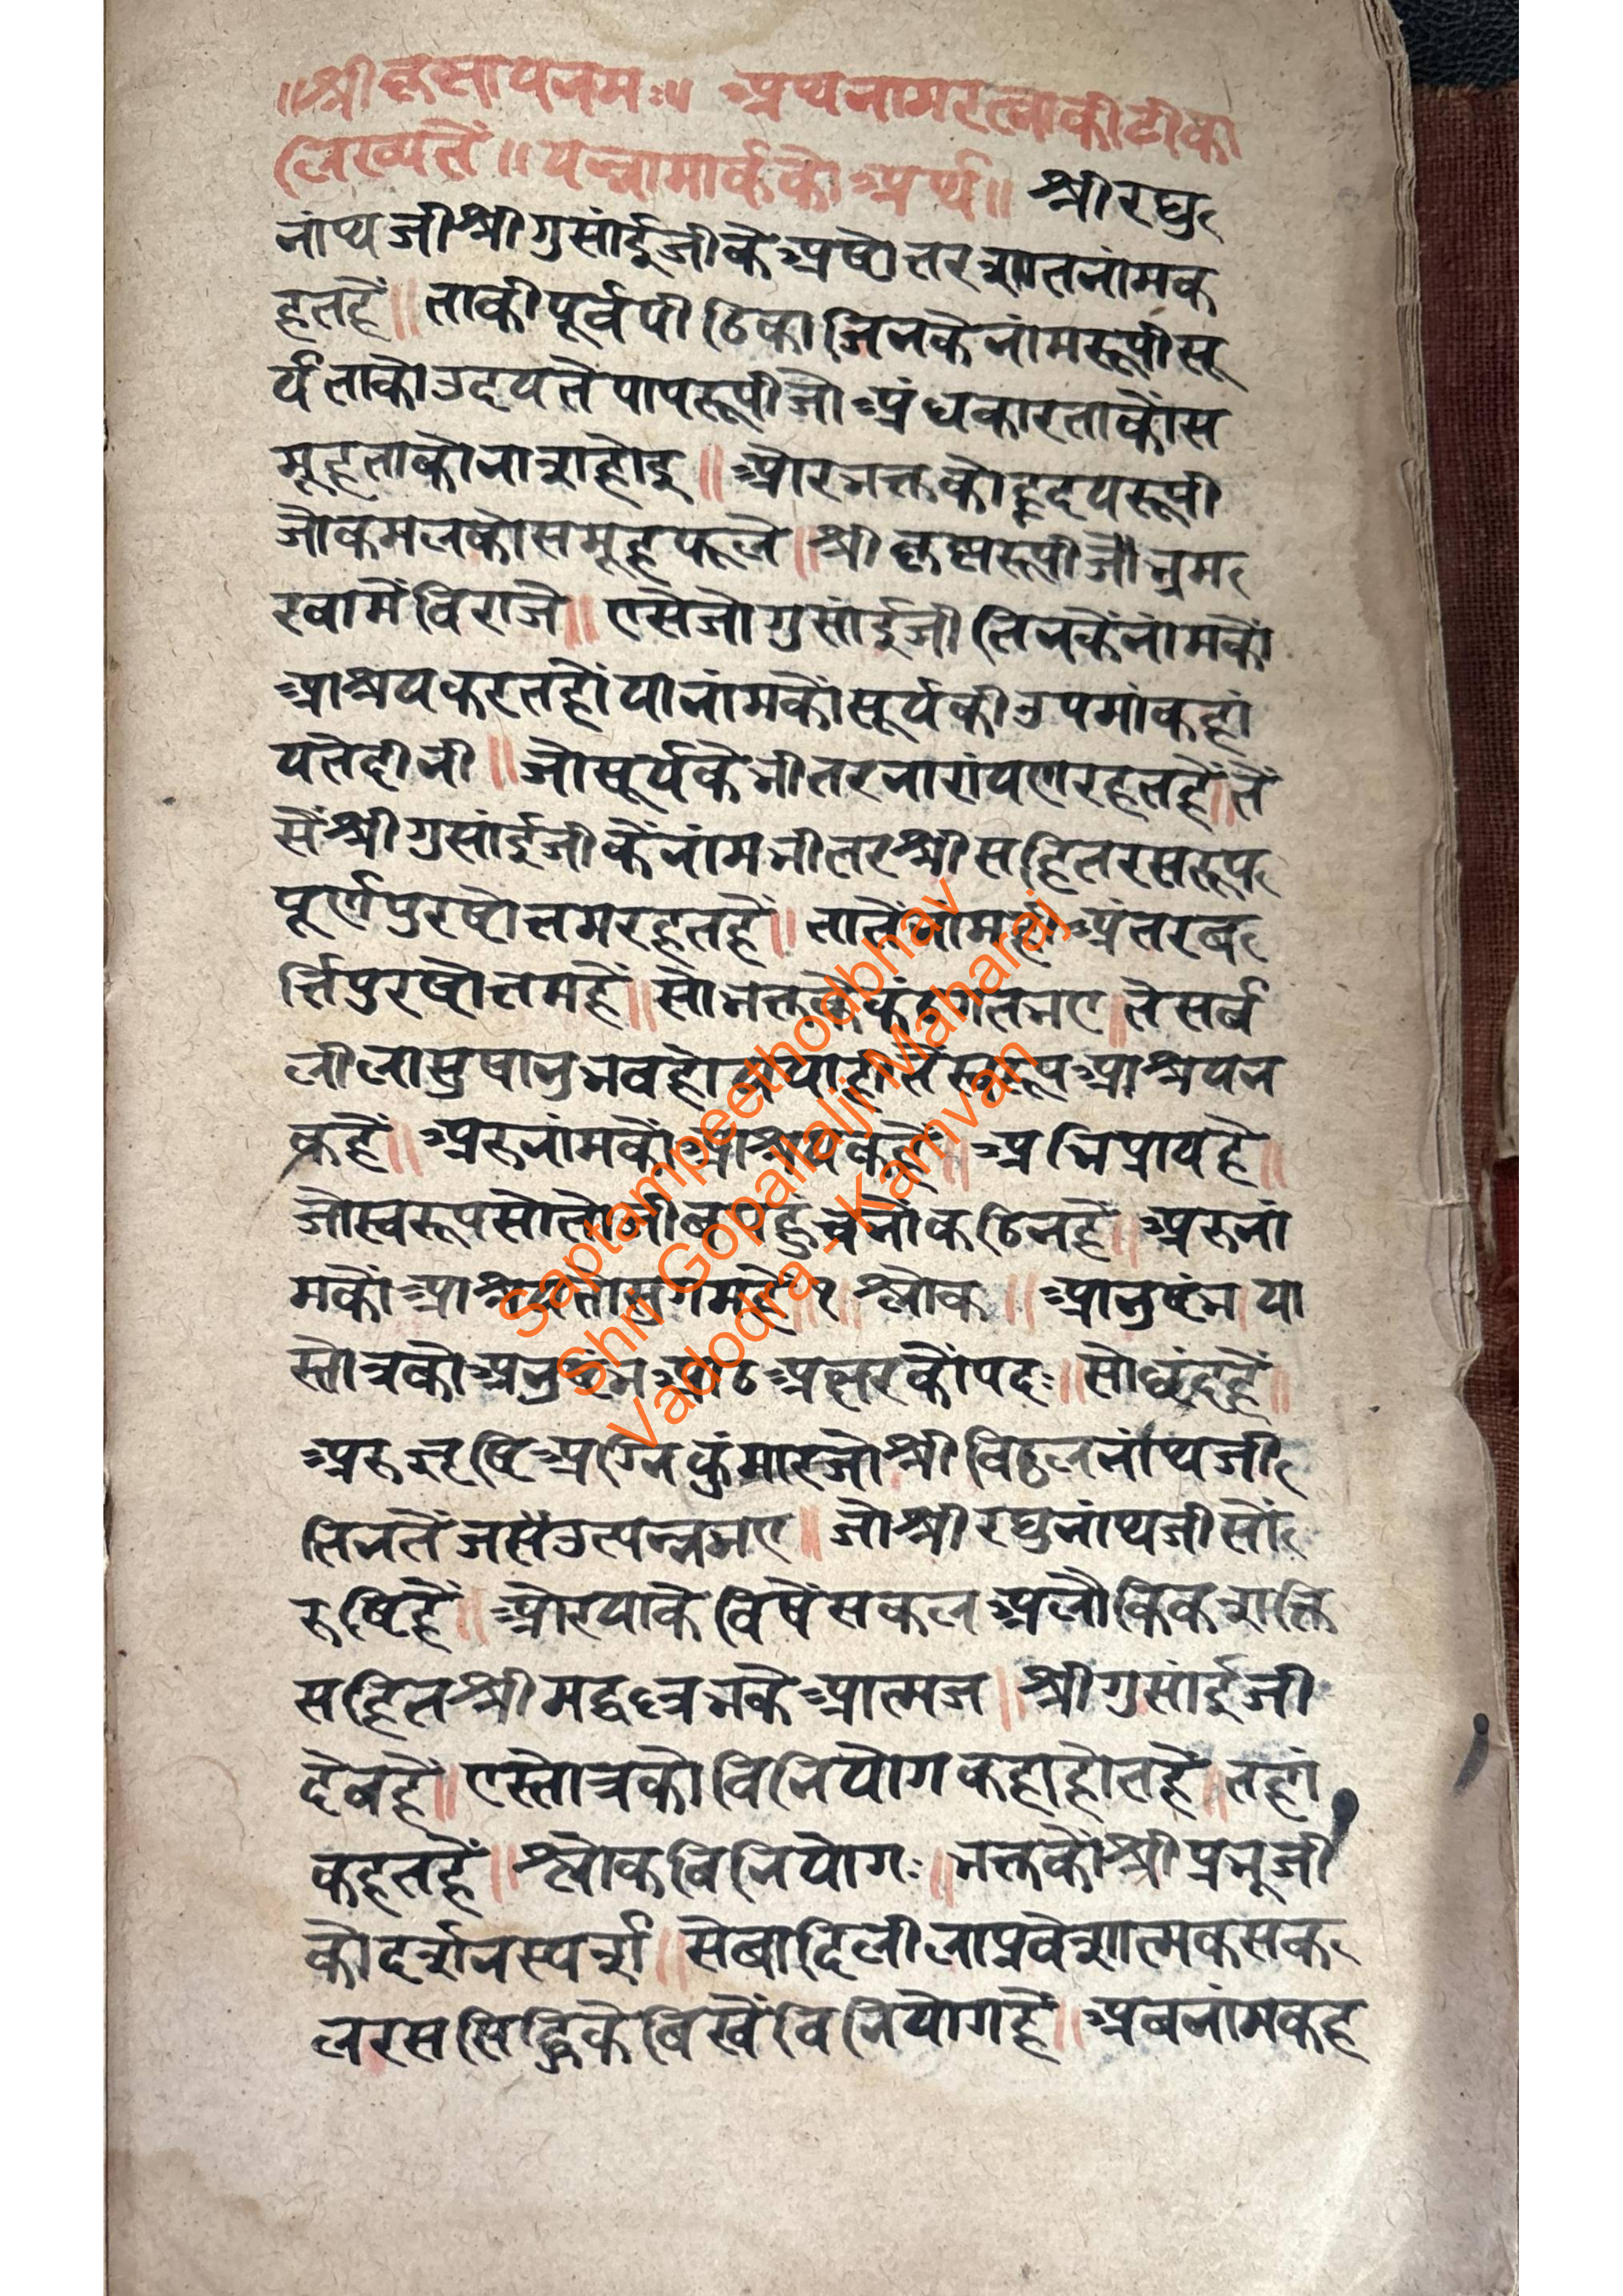 ॥श्रीकृष्णायनमः॥ अथनामरत्नाकीटीका
लिख्यते॥ यन्नामार्कको अर्थ॥ श्रीरघु
नांथजीश्रीगुसांईजीके अष्टोत्तरशतनांमक
हतहैं॥ ताकीपूर्वपीठिका जिनकेनांमरूपीसू
र्यताकोउदयतेपापरूपीजोअंधकारताकौस
मूहताकोनाशहोइ॥ औरभक्तकोहृदयरूपी
जोकमलकोसमूहफूले॥ श्रीकृष्णरूपीजोभ्रम
रवामेंविराजे॥ एसेजोगुसांईजी तिनकेंनांमकों
आश्रयकरतहों यानांमकोंसूर्यकीउपमांकहां
यतेदीनी॥ जोसूर्यकेभीतरनारांयणरहतहैं॥तै
सेंश्रीगुसांईजीकेंनांमभीतरश्रीसहितरसरूप
पूर्णपुरषोत्तमरहतहैं॥ तातेंनांमही अंतरब
र्त्तिपुरषोत्तमहैं॥ सोभक्तकेफंदगतभए॥तेसर्व
लीलासुषानुभवहोत यातेस्वरूपआश्रयन
कहैं॥ अरुनांमकोंआश्रयकहैं॥ अभिप्रायहै॥
जोस्वरूपसोतोजीबपहुचनोंकठिनहै॥ अरुनां
मकोंआश्रयतोसुगमहै॥१॥ श्लोक॥ आनुष्टंभ। या
स्तोत्रकोअनुष्टुभआठअक्षरकोंपदः॥ सोछंदहैं॥
अरुऋषिअग्निकुंमारजोश्रीविठ्ठलनांथजी
तिनतेंजसेंउत्पन्नभए॥ जोश्रीरघुनांथजीसों
रुषिहैं॥ औरयाकेबिषेंसकलअलौकिकशक्ति
सहितश्रीमद्वल्लभकेआत्मज॥ श्रीगुसांईजी
देबहैं॥ एस्तोत्रको विनियोग कहाहोतहैं॥ तहां
कहतहैं॥ श्लोकविनियोगः॥ भक्तकोंश्रीप्रभूजी
कोदर्शनस्पर्श॥ सेबादिलीलाप्रवेशात्मकसक
लरससिद्धिकेबिखेंविनियोगहैं॥ अबनांमकह
Saptampeethodbhav
Shri Gopallalji Maharaj
Vadodra - Kamvan